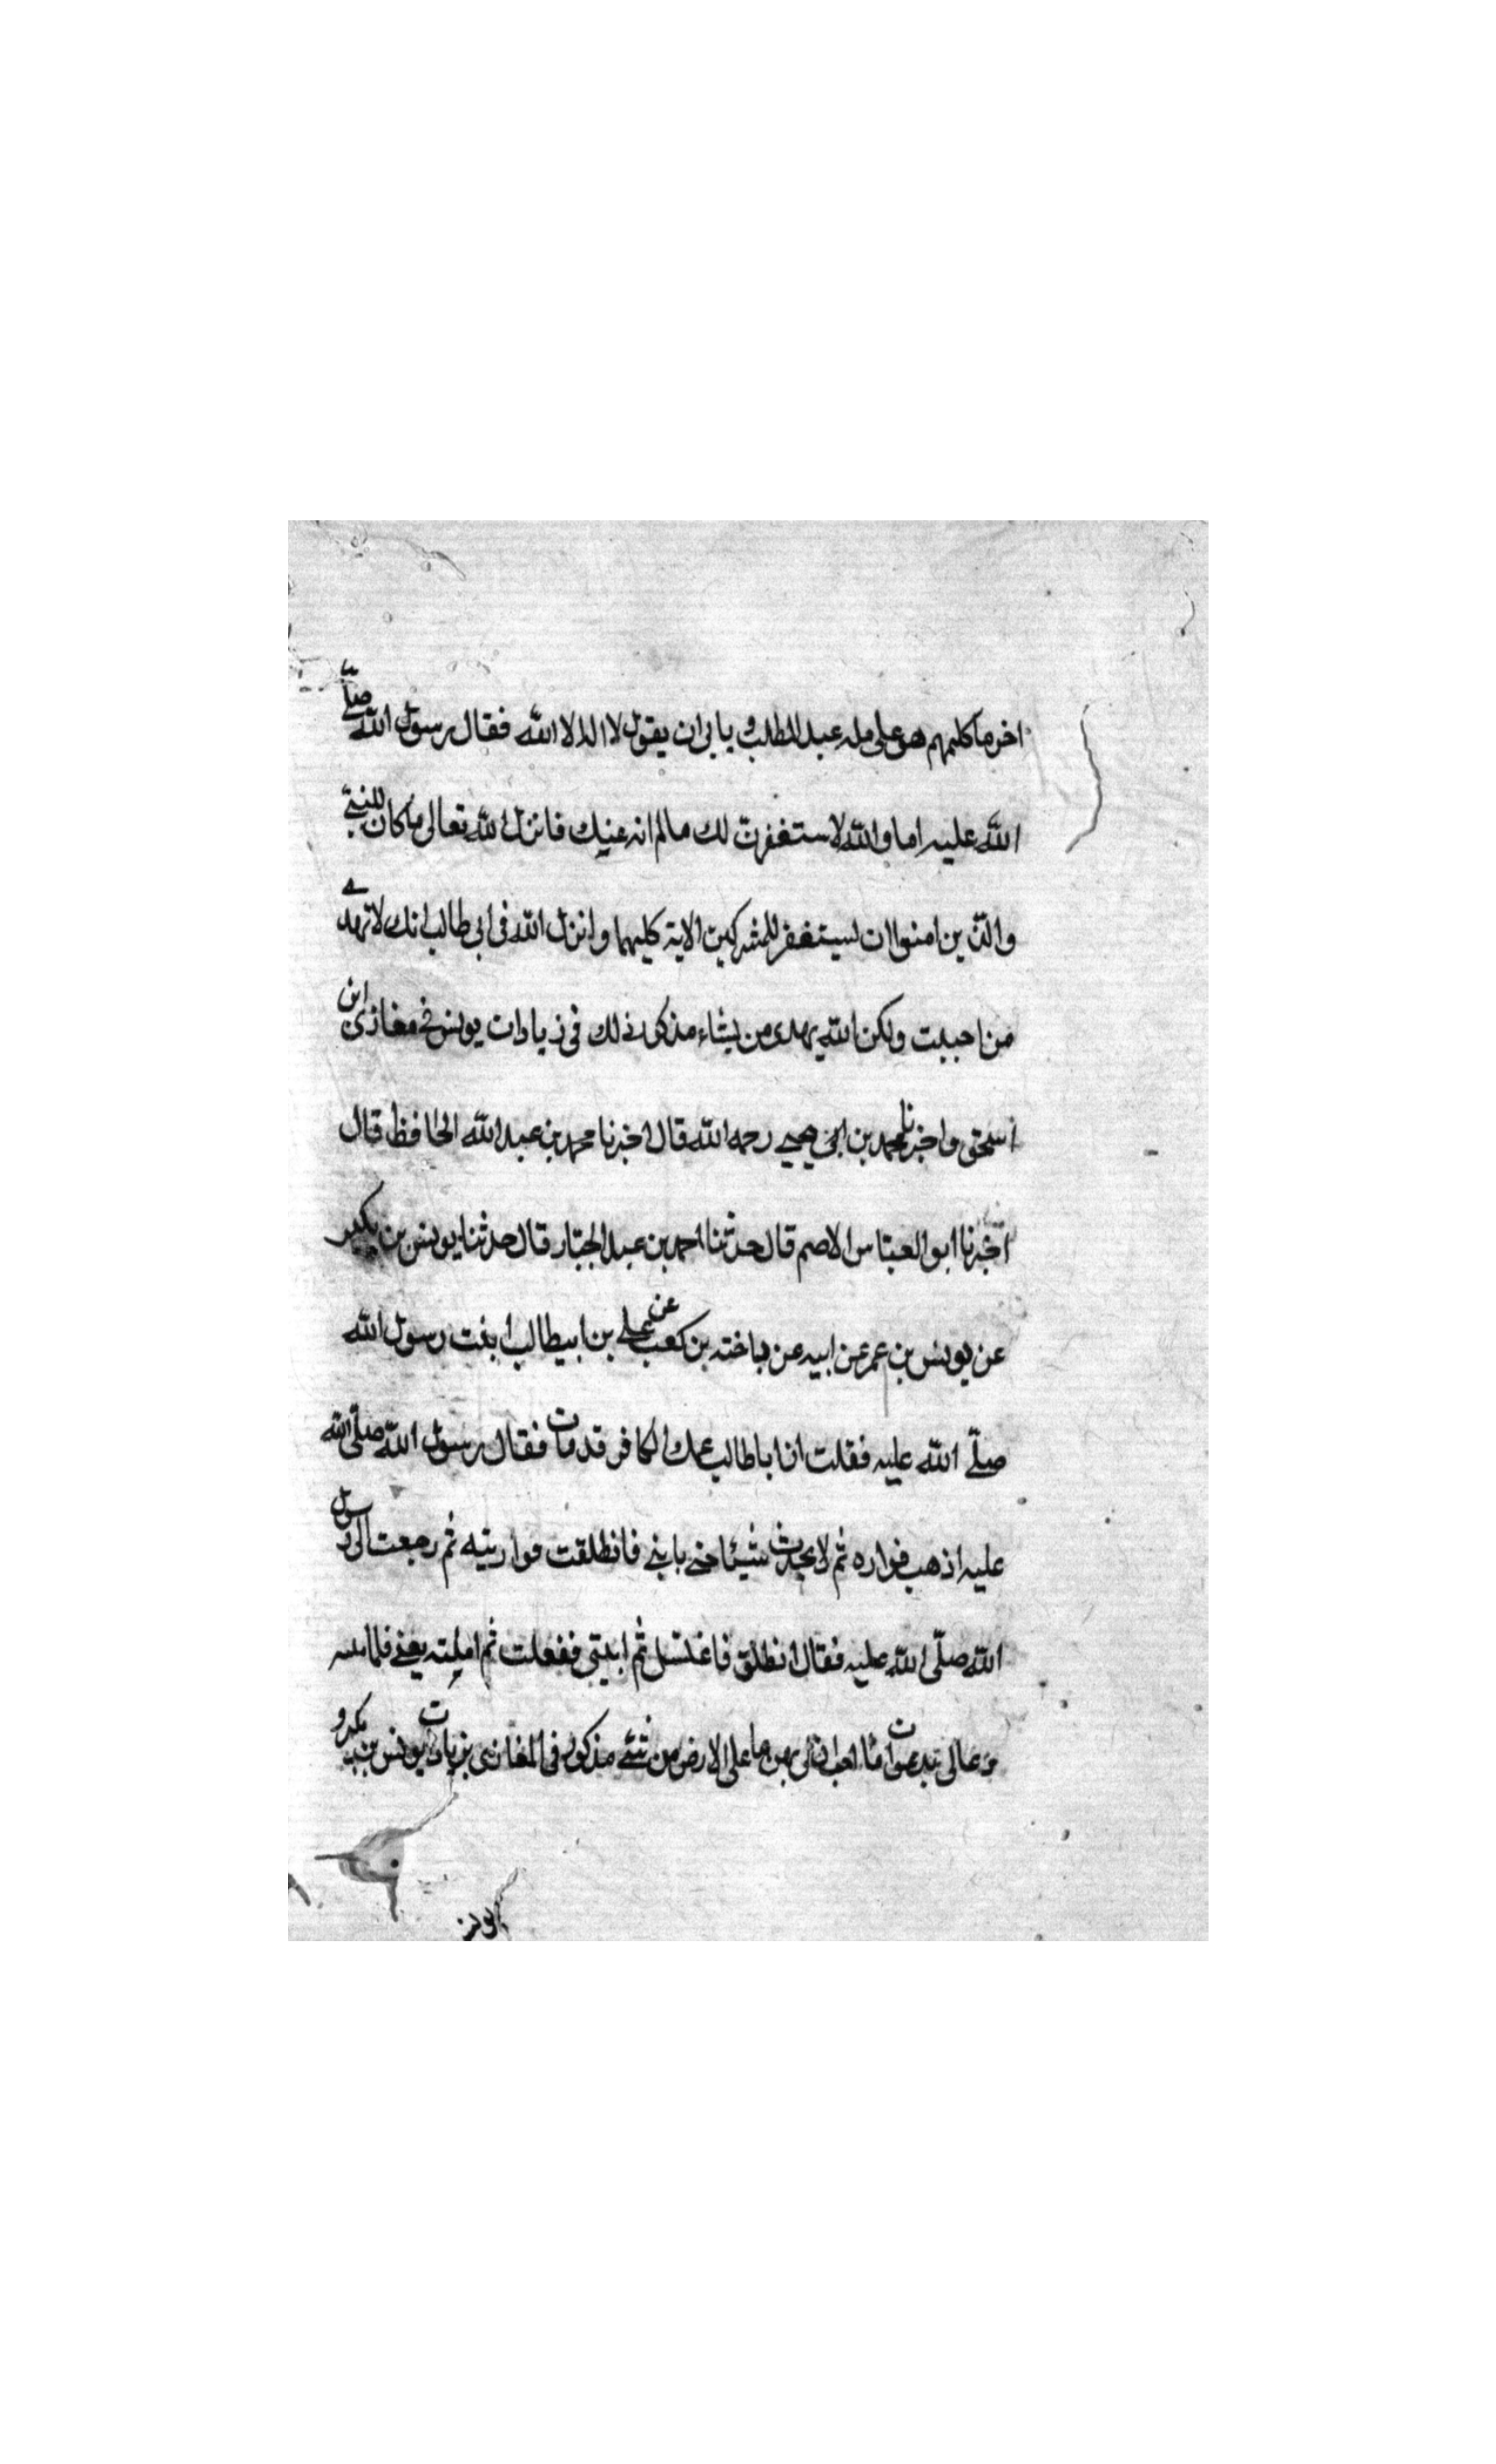 اخر ما كلمهم هو على مله عبد المطلب و يابى ان يقول لا اله الا الله فقال رسول الله صلى
الله عليه اما والله لاستغفرن لك مالم انه عنك فانزل الله تعالى ما كان للنبي
والذين امنوا ان يستغفر للمشركين الاية كليهما وانزل الله في ابي طالب انك لا تهدي
من احببت ولكن الله يهدى من يشاء مذكور ذلك في زيادات يونس في مغازى ابن
اسحق واخبرنا محمد بن يحيى رحمه الله قال اخبرنا محمد بن عبد الله الحافظ قال
اخبرنا ابو العباس الاصم قال حدثنا احمد بن عبد الجبار قال حدثنا يونس بن بكير
عن يونس بن عمر عن ابيه عن باخته بن كعب عن علي بن ابيطالب ابغت رسول الله
صلى الله عليه فقلت ان اباطالب عمك الكافر قد مات فقال رسول الله صلى الله
عليه اذهب فواره ثم لا يحدث شيئا حتى ياتني فانطلقت فواريته ثم رجعت الى رسول
الله صلى الله عليه فقال انطلق فاغتسل ثم ايتني ففعلت ثم اتيته يعنى فلما
دعالى بدعوات ما احب ان لى بهن ما على الارض من شئ مذكور فى المغازى يونس بن بكير و